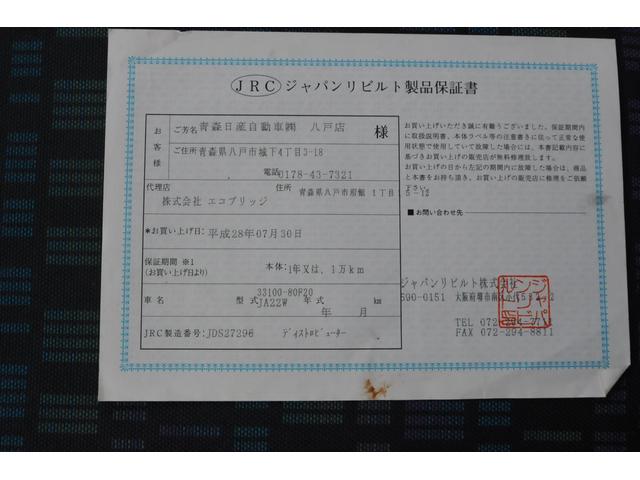 JRC ジャパンリビルト製品保証書
お客様
ご芳名 青森日産自動車㈱ 八戸店 様
ご住所 青森県八戸市城下4丁目3-18
電話 0178-43-7321
代理店 住所 青森県八戸市 1丁目15-12
株式会社 エコブリッジ
*お買い上げ日: 平成28年07月30日
保証期間 ※1
(お買い上げ日より)
本体: 1年又は、1万km
33100-80F20
車名 型式 JA22W 年式 km
年 月
JRC製造番号: JDS27296 ディストロビューター
お買い上げいただき誠に有難うございました。保証期間内
に取扱説明書、本体ラベル等の注意書きに依って正常な使
用状態で使用していて故障した場合には、本書記載内容に
基づきお買い上げの販売店が無料修理致します。
お買い上げの日から左記の期間内に故障した場合は、商品
と本書をお持ち頂き、お買い上げの販売店に修理をご依頼
下さい。
■お問い合わせ先
ジャパンリビルト株式会社
590-0151 大阪府堺市南区
TEL 072-294-
FAX 072-294-8811
ジャパンリビルト